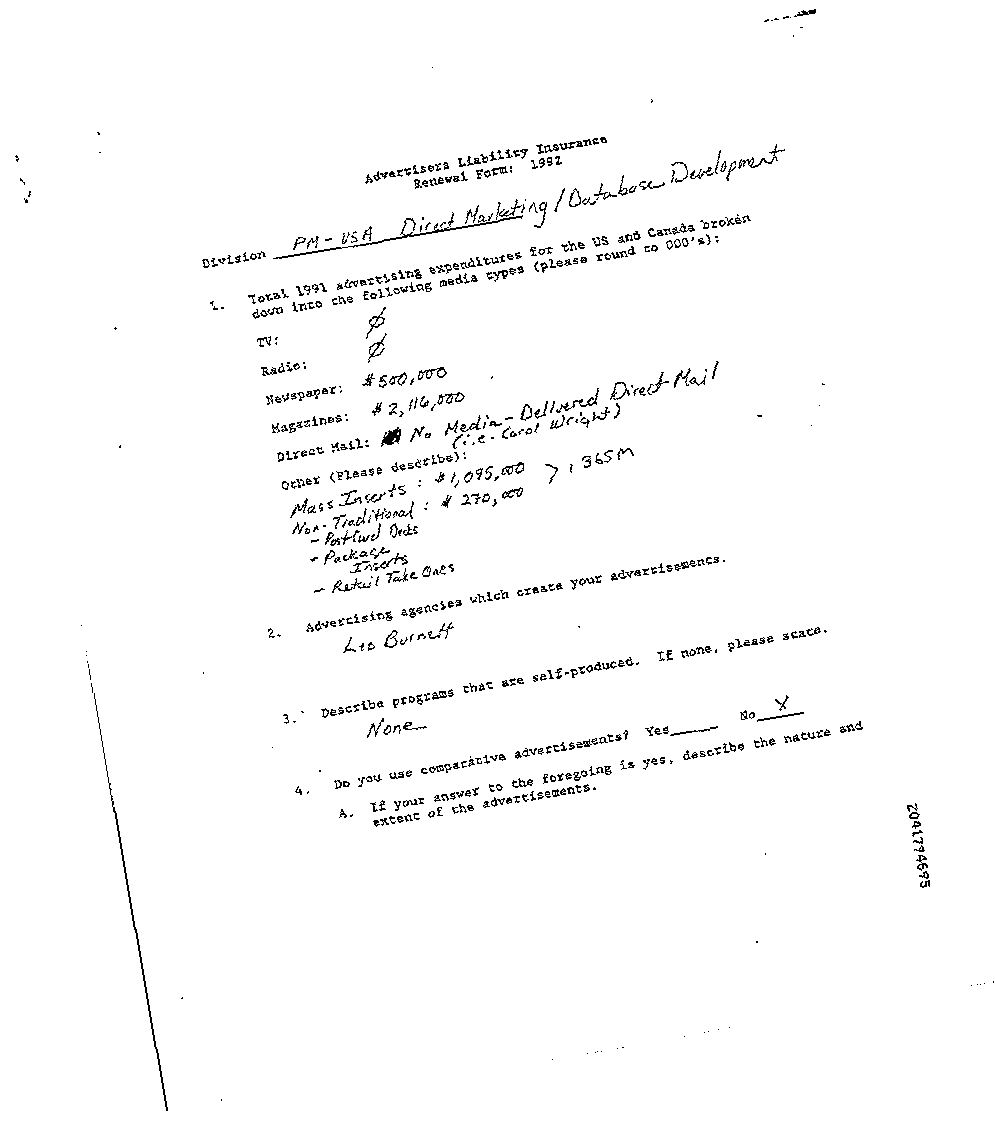 Advertisers Liability Insurance
Renewal Form: 1992
Division PM-USA Direct Marketing/Database Development
1. Total 1991 advertising expenditures for the US and Canada broken
down into the following media types (please round to 000's):
TV: Ø
Radio: Ø
Newspaper: $500,000
Magazines: $2,116,000
Direct Mail: No Media-Delivered Direct Mail
(i.e. Carol Wright)
Other (Please describe):
Mass Inserts: $1,095,000 > 1,365M
Non-Traditional: $270,000
- Postcard Decks
- Package
Inserts
- Retail Take Ones
2. Advertising agencies which create your advertisements.
Leo Burnett
3. Describe programs that are self-produced. If none, please state.
None
4. Do you use comparative advertisements? Yes____ No X
A. If your answer to the foregoing is yes, describe the nature and
extent of the advertisements.
2041794695